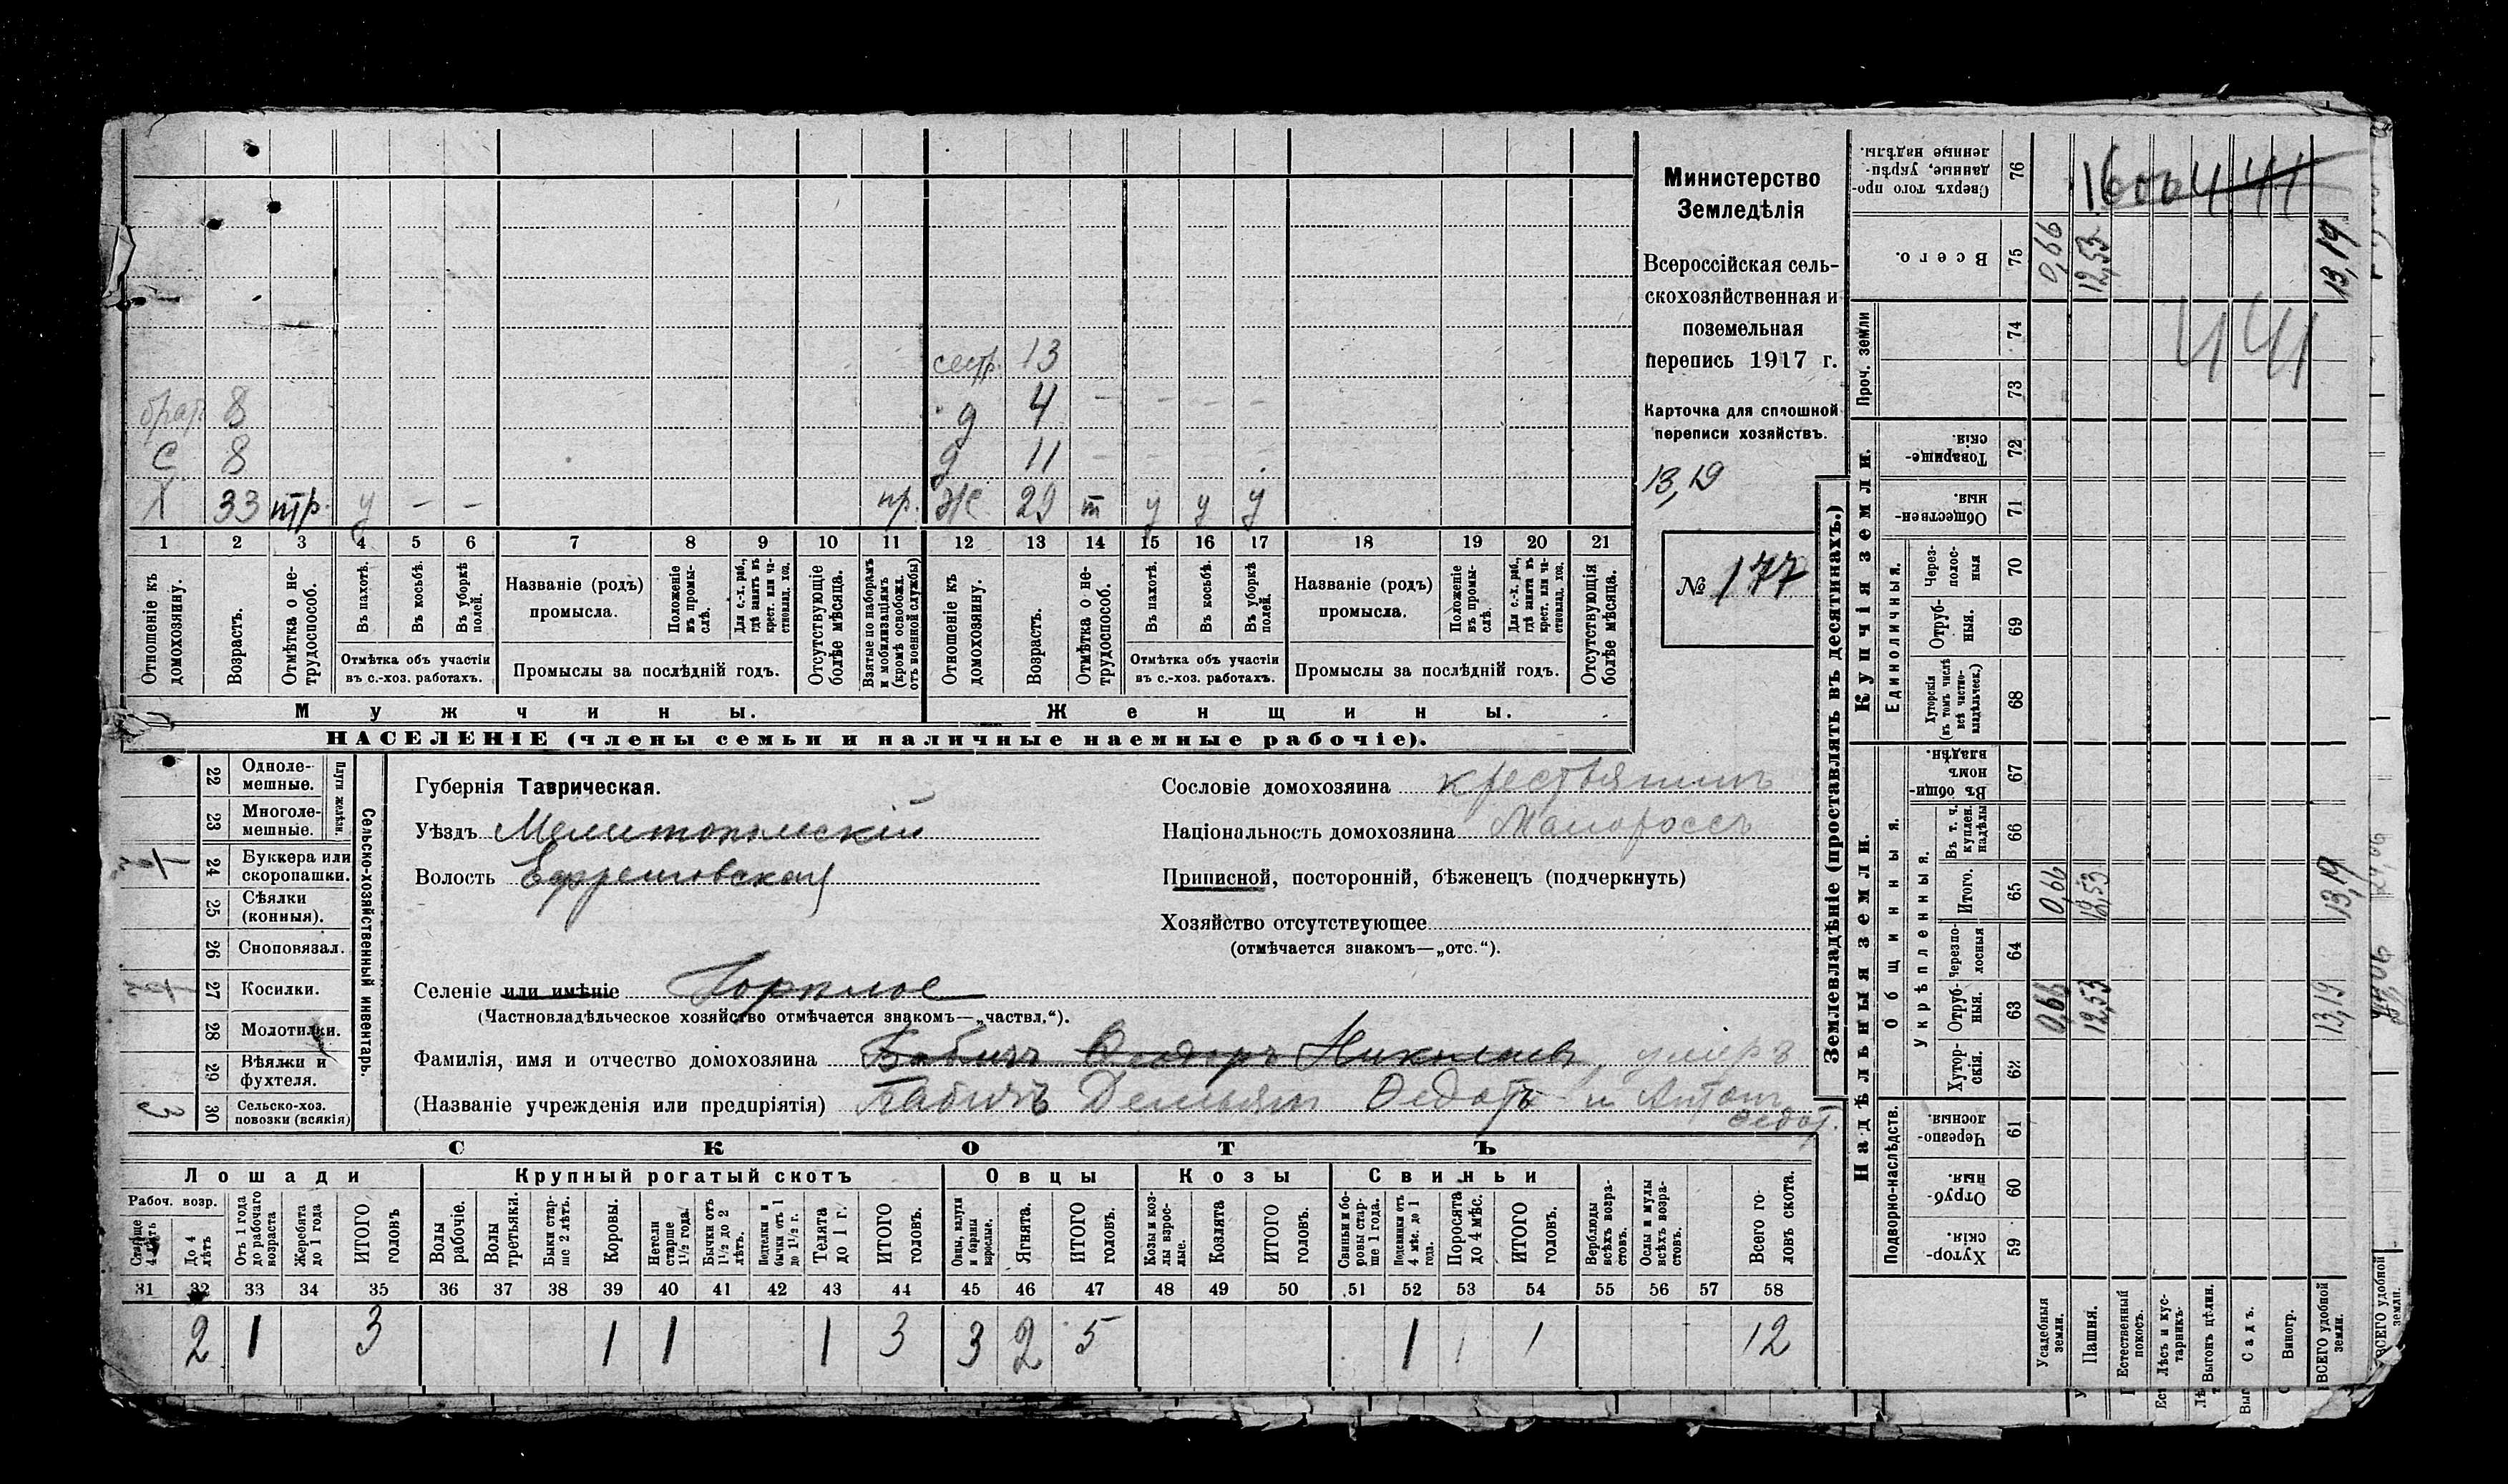 Министерство
Земледѣлія
Всероссійская сель-
скохозяйственная и
поземельная
перепись 1917 г.
Карточка для сплошной
переписи хозяйствъ.
13,19
№ 177
сестр. 13
брат. 8 д 4 – – – –
с 8 д 11 – – – –
Х 33 тр. у – – пр. ж 29 т у у у
1 2 3 4 5 6 7 8 9 10 11 12 13 14 15 16 17 18 19 20 21
Отношеніе къ домохозяину.
Возрастъ.
Отмѣтка о не-трудоспособ.
Въ пахотѣ.
Въ косьбѣ.
Въ уборкѣ полей.
Отмѣтка объ участіи въ с.-хоз. работахъ.
Названіе (родъ) промысла.
Положеніе въ промы-слѣ.
Для с.-х. раб., гдѣ занятъ въ крест. или ча-стновлад. хоз.
Промыслы за послѣдній годъ.
Отсутствующіе болѣе мѣсяца.
Взятые по наборамъ и мобилизаціямъ (кромѣ освобожд. отъ военной службы)
Отношеніе къ домохозяину.
Возрастъ.
Отмѣтка о не-трудоспособ.
Въ пахотѣ.
Въ косьбѣ.
Въ уборкѣ полей.
Отмѣтка объ участіи въ с.-хоз. работахъ.
Названіе (родъ) промысла.
Положеніе въ промы-слѣ.
Для с.-х. раб., гдѣ занятъ въ крест. или ча-стновлад. хоз.
Промыслы за послѣдній годъ.
Отсутствующія болѣе мѣсяца.
Мужчины. Женщины.
НАСЕЛЕНІЕ (члены семьи и наличные наемные рабочіе).
Сельско-хозяйственный инвентарь.
Плуги желѣзн.
22 Одноле-мешные.
23 Многоле-мешные.
24 Буккера или скоропашки.
25 Сѣялки (конныя).
26 Сноповязал.
27 Косилки.
28 Молотилки.
29 Вѣялки и фухтеля.
30 Сельско-хоз. повозки (всякія) 3
Губернія Таврическая.
Уѣздъ Мелитопольскій
Волость Ефремовская
Селеніе или имѣніе Горѣлое
(Частновладѣльческое хозяйство отмѣчается знакомъ—„частвл.“).
Сословіе домохозяина крестьянинъ
Національность домохозяина Малороссъ
Приписной, посторонній, бѣженецъ (подчеркнуть)
Хозяйство отсутствующее
(отмѣчается знакомъ—„отс.“).
Фамилія, имя и отчество домохозяина Бабичъ Федоръ Николаевъ умеръ
(Названіе учрежденія или предпріятія) Бабичъ Демьянъ Федотъ и Антонъ
Федот.
СКОТЪ
Лошади Крупный рогатый скотъ Овцы Козы Свиньи
Рабоч. возр.
Старше 4 лѣтъ
До 4 лѣтъ
Отъ 1 года до рабочаго возраста
Жеребята до 1 года
ИТОГО головъ
Волы рабочіе.
Волы третьяки.
Быки стар-ше 2 лѣтъ.
Коровы.
Нетели старше 1½ года.
Бычки отъ 1½ до 2 лѣтъ.
Подтелки и бычки отъ 1 до 1½ г.
Телята до 1 г.
ИТОГО головъ.
Овцы, валухи и бараны взрослые.
Ягнята.
ИТОГО головъ.
Козы и коз-лы взрос-лые.
Козлята
ИТОГО головъ.
Свиньи и бо-ровы стар-ше 1 года.
Подсвинки отъ 4 мѣс. до 1 года.
Поросята до 4 мѣс.
ИТОГО головъ.
Верблюды всѣхъ возра-стовъ.
Ослы и мулы всѣхъ возра-стовъ.
Всего го-ловъ скота.
31 32 33 34 35 36 37 38 39 40 41 42 43 44 45 46 47 48 49 50 51 52 53 54 55 56 57 58
2 1 3 1 1 1 3 3 2 5 1 1 1 12
Землевладѣніе (проставлять въ десятинахъ.)
Надѣльныя земли. Купчія земли.
Подворно-наслѣдств. Общинныя. Укрѣпленныя. Единоличныя. Проч. земли
76 Сверхъ того про-данные, укрѣп-ленные надѣлы.
75 Всего. 0,66 12,53 13,19
74
73
72 Товарище-скія.
71 Обществен-ныя.
70 Через-полос-ныя
69 Отруб-ныя.
68 Хуторскія (въ томъ числѣ всѣ частно-владѣльческ.)
67 Въ общин-номъ владѣн.
66 Въ т. ч. куплен. надѣлы
65 Итого. 0,66 12,53 13,19
64 Черезпо-лосныя
63 Отруб-ныя. 0,66 12,53 13,19
62 Хутор-скія.
61 Черезпо-лосныя.
60 Отруб-ныя.
59 Хутор-скія.
Усадебныя земли.
Пашня.
Естественный покосъ.
Лѣсъ и кус-тарникъ.
Выгонъ цѣлин.
Садъ.
Виногр.
ВСЕГО удобной земли.
ВСЕГО удобной земли.
441